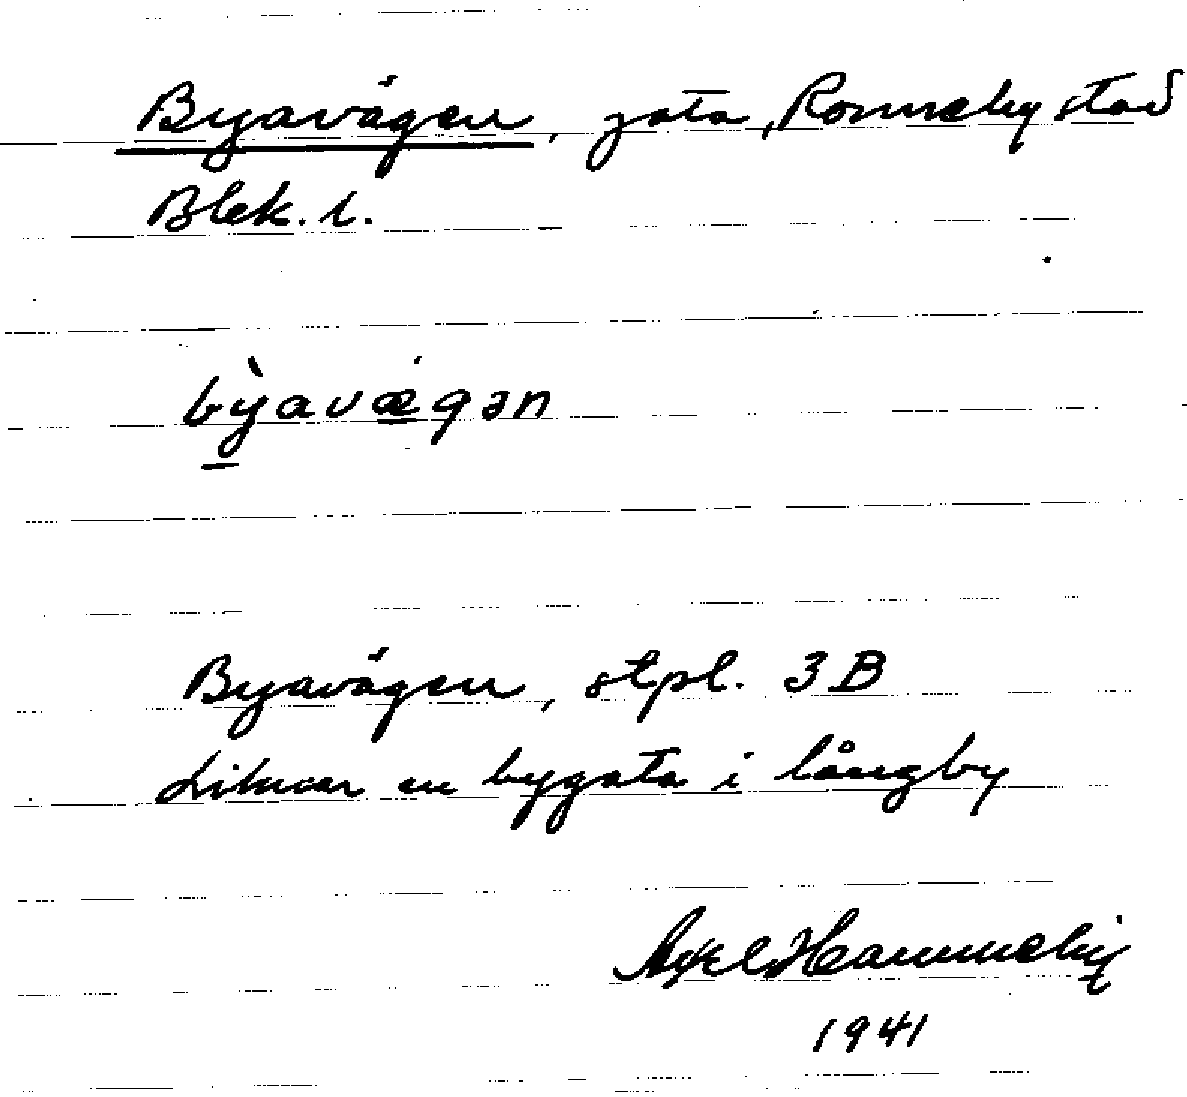 Byavägen, gata, Ronneby stad
Blek. l.
bỳavægən
Byavägen, stpl. 3B
Liknar en bygata i långby
Axel
1941